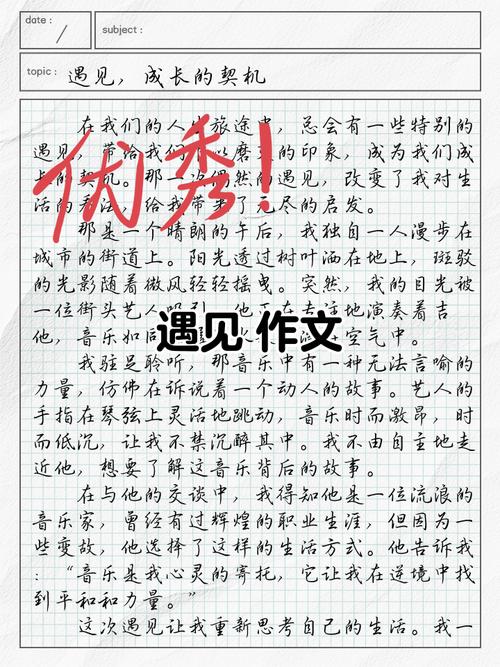 date :
subject :
topic : 遇见，成长的契机
在我们的人生旅途中，总会有一些特别的
遇见，带给我们难以磨灭的印象，成为我们成
长的契机。那一次偶然的遇见，改变了我对生
活的看法，给我带来了无尽的启发。
优秀！
那是一个晴朗的午后，我独自一人漫步在
城市的街道上。阳光透过树叶洒在地上，斑驳
的光影随着微风轻轻摇曳。突然，我的目光被
一位街头艺人吸引，他正在专注地演奏着吉
他，音乐如同 空气中。
遇见 作文
我驻足聆听，那音乐中有一种无法言喻的
力量，仿佛在诉说着一个动人的故事。艺人的
手指在琴弦上灵活地跳动，音乐时而激昂，时
而低沉，让我不禁沉醉其中。我不由自主地走
近他，想要了解这音乐背后的故事。
在与他的交谈中，我得知他是一位流浪的
音乐家，曾经有过辉煌的职业生涯，但因为一
些变故，他选择了这样的生活方式。他告诉我
：“音乐是我心灵的寄托，它让我在逆境中找
到平和和力量。”
这次遇见让我重新思考自己的生活。我一